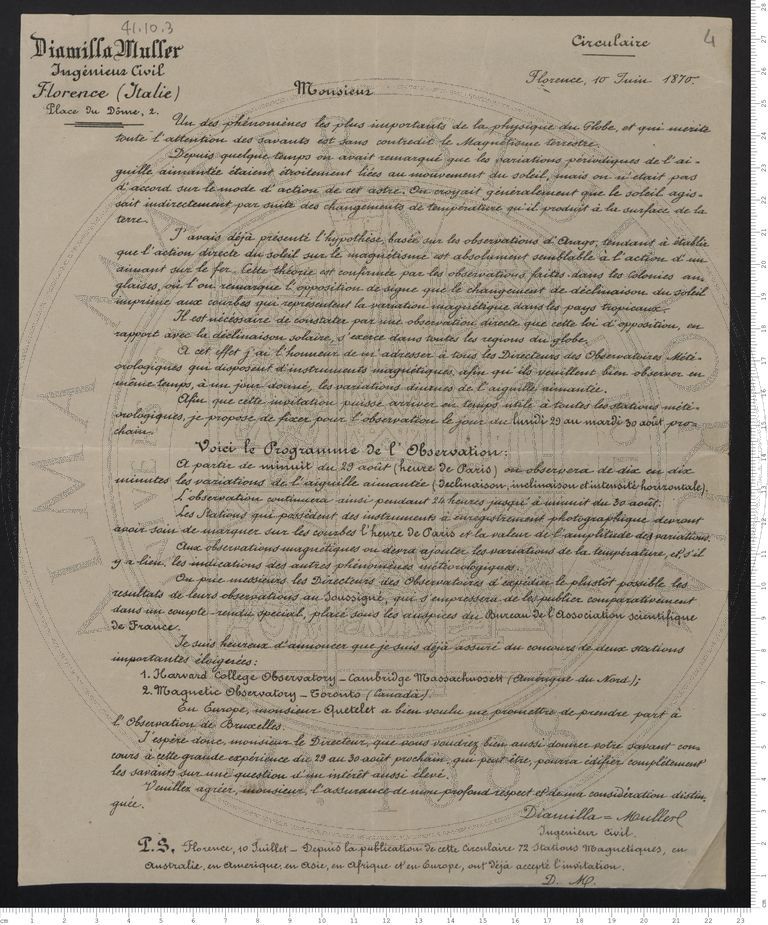 41.10.3
4
Diamilla Muller
Ingénieur Civil
Florence (Italie)
Place du Dôme, 2.
Circulaire
Florence, 10 Juin 1870.
Monsieur
Un des phénomènes les plus importants de la physique du Globe, et qui merite
toute l'attention des savants est sans contredit le Magnétisme terrestre.
Depuis quelque temps on avait remarqué que les variations périodiques de l'ai-
guille aimantée étaient étroitement liées au mouvement du soleil, mais on n'était pas
d'accord sur le mode d'action de cet astre. On croyait généralement que le soleil agis-
sait indirectement par suite des changements de température qu'il produit à la surface de la
terre.
J'avais déjà présenté l'hypothèse, basée sur les observations d'Arago, tendant à établir
que l'action directe du soleil sur le magnétisme est absolument semblable à l'action d'un
aimant sur le fer. Cette théorie est confirmée par les observations faites dans les Colonies an-
glaises, où l'on remarque l'opposition de signe que le changement de déclinaison du soleil
imprime aux courbes qui représentent la variation magnétique dans les pays tropicaux.
Il est nécessaire de constater par une observation directe que cette loi d'opposition, en
rapport avec la déclinaison solaire, s'exerce dans toutes les regions du globe.
A cet effet j'ai l'honneur de m'adresser à tous les Directeurs des Observatoires Mété-
orologiques qui disposent d'instruments magnétiques, afin qu'ils veuillent bien observer en
même temps, à un jour donné, les variations diurnes de l'aiguille aimantée.
Afin que cette invitation puisse arriver en temps utile à toutes les stations mété-
orologiques, je propose de fixer pour l'observation le jour du lundi 29 au mardi 30 août pro-
chain.
Voici le Programme de l'Observation:
A partir de minuit du 29 août (heure de Paris) on observera de dix en dix
minutes les variations de l'aiguille aimantée (Declinaison, inclinaison et intensité horizontale).
L'observation continuera ainsi pendant 24 heures jusqu'à minuit du 30 août.
Les Stations qui possèdent des instruments à enregistrement photographique devront
avoir soin de marquer sur les courbes l'heure de Paris et la valeur de l'amplitude des variations.
Aux observations magnétiques on devra ajouter les variations de la température, et s'il
y a lieu, les indications des autres phénomènes météorologiques.
On prie messieurs les Directeurs des Observatoires d'expédier le plustot possible les
resultats de leurs observations au Soussigné, qui s'empressera de les publier comparativement
dans un compte-rendu spécial, placé sous les auspices du Bureau de l'Association scientifique
de France.
Je suis heureux d'annoncer que je suis déjà assuré du concours de deux stations
importantes éloignées:
1. Harvard College Observatory – Cambridge Massachussett (Amérique du Nord);
2. Magnetic Observatory – Toronto (Canada).
En Europe, monsieur Quetelet a bien voulu me promettre de prendre part à
l'Observation de Bruxelles.
J'espère donc, monsieur le Directeur, que vous voudrez bien aussi donner votre savant con-
cours à cette grande expérience du 29 au 30 août prochain, qui peut être, pourra édifier complètement
les savants sur une question d'un intérêt aussi élevé.
Veuillez agréer, monsieur, l'assurance de mon profond respect et de ma considération distin-
guée.
Diamilla = Muller
Ingenieur Civil.
P.S. Florence, 10 Juillet – Depuis la publication de cette Circulaire 72 Stations Magnetiques, en
Australie, en Amerique, en Asie, en Afrique et en Europe, ont déjà accepté l'invitation.
D. M.